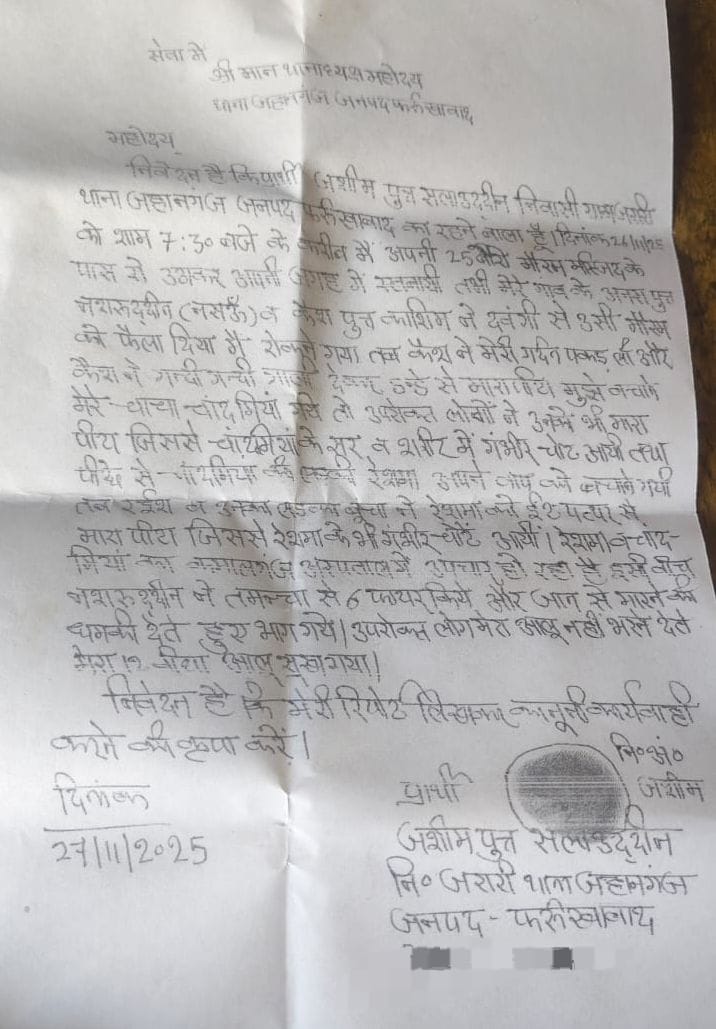 सेवा में
श्री मान थानाध्यक्ष महोदय
थाना जहानगंज जनपद फर्रुखाबाद
महोदय
निवेदन है कि प्रार्थी जशीम पुत्र सलाउद्दीन निवासी ग्राम जरारी
थाना जहानगंज जनपद फर्रुखाबाद का रहने वाला है। दिनांक 26/11/25
को शाम 7:30 बजे के करीब मैं अपनी 25 मौरंग मस्जिद के
पास से उठाकर अपनी जगह में तभी मेरे गांव के अनस पुत्र
नशरुद्दीन (नसरू) व कैश पुत्र काशिम ने दबंगी से उसी मौरंग
को फैला दिया मैं रोकने गया तब कैश ने मेरी गर्दन पकड़ ली और
कैश ने गन्दी गन्दी गाली देकर डन्डे से मारापीटा मुझे बचाने
मेरे चाचा चांद मियां गये तो उपरोक्त लोगों ने उनके भी मारा
पीटा जिससे चांदमियां के सर व शरीर में गंभीर चोट आयी तथा
पीछे से चांदमियां की लड़की रेशमा अपने बाप को बचाने गयी
तब रईश व उनका लड़का ने रेशमा को ईट पत्थर से
मारा पीटा जिससे रेशमा के भी गंभीर चोटें आयीं। रेशमा व चांद-
मियां का कमालगंज अस्पताल में उपचार हो रहा है इसी बीच
नशरुद्दीन ने तमन्चा से 6 फायर किये और जान से मारने की
धमकी देते हुए भाग गये। उपरोक्त लोग मेरा आलू नहीं भरने देते
मेरा 12 बीघा आलू सूख गया।
निवेदन है कि मेरी रिपोर्ट लिखकर कानूनी कार्यवाही
करने की कृपा करें।
नि॰ अं॰
जशीम
दिनांक
27/11/2025
प्रार्थी
जशीम पुत्र सलाउद्दीन
नि॰ जरारी थाना जहानगंज
जनपद - फर्रुखाबाद